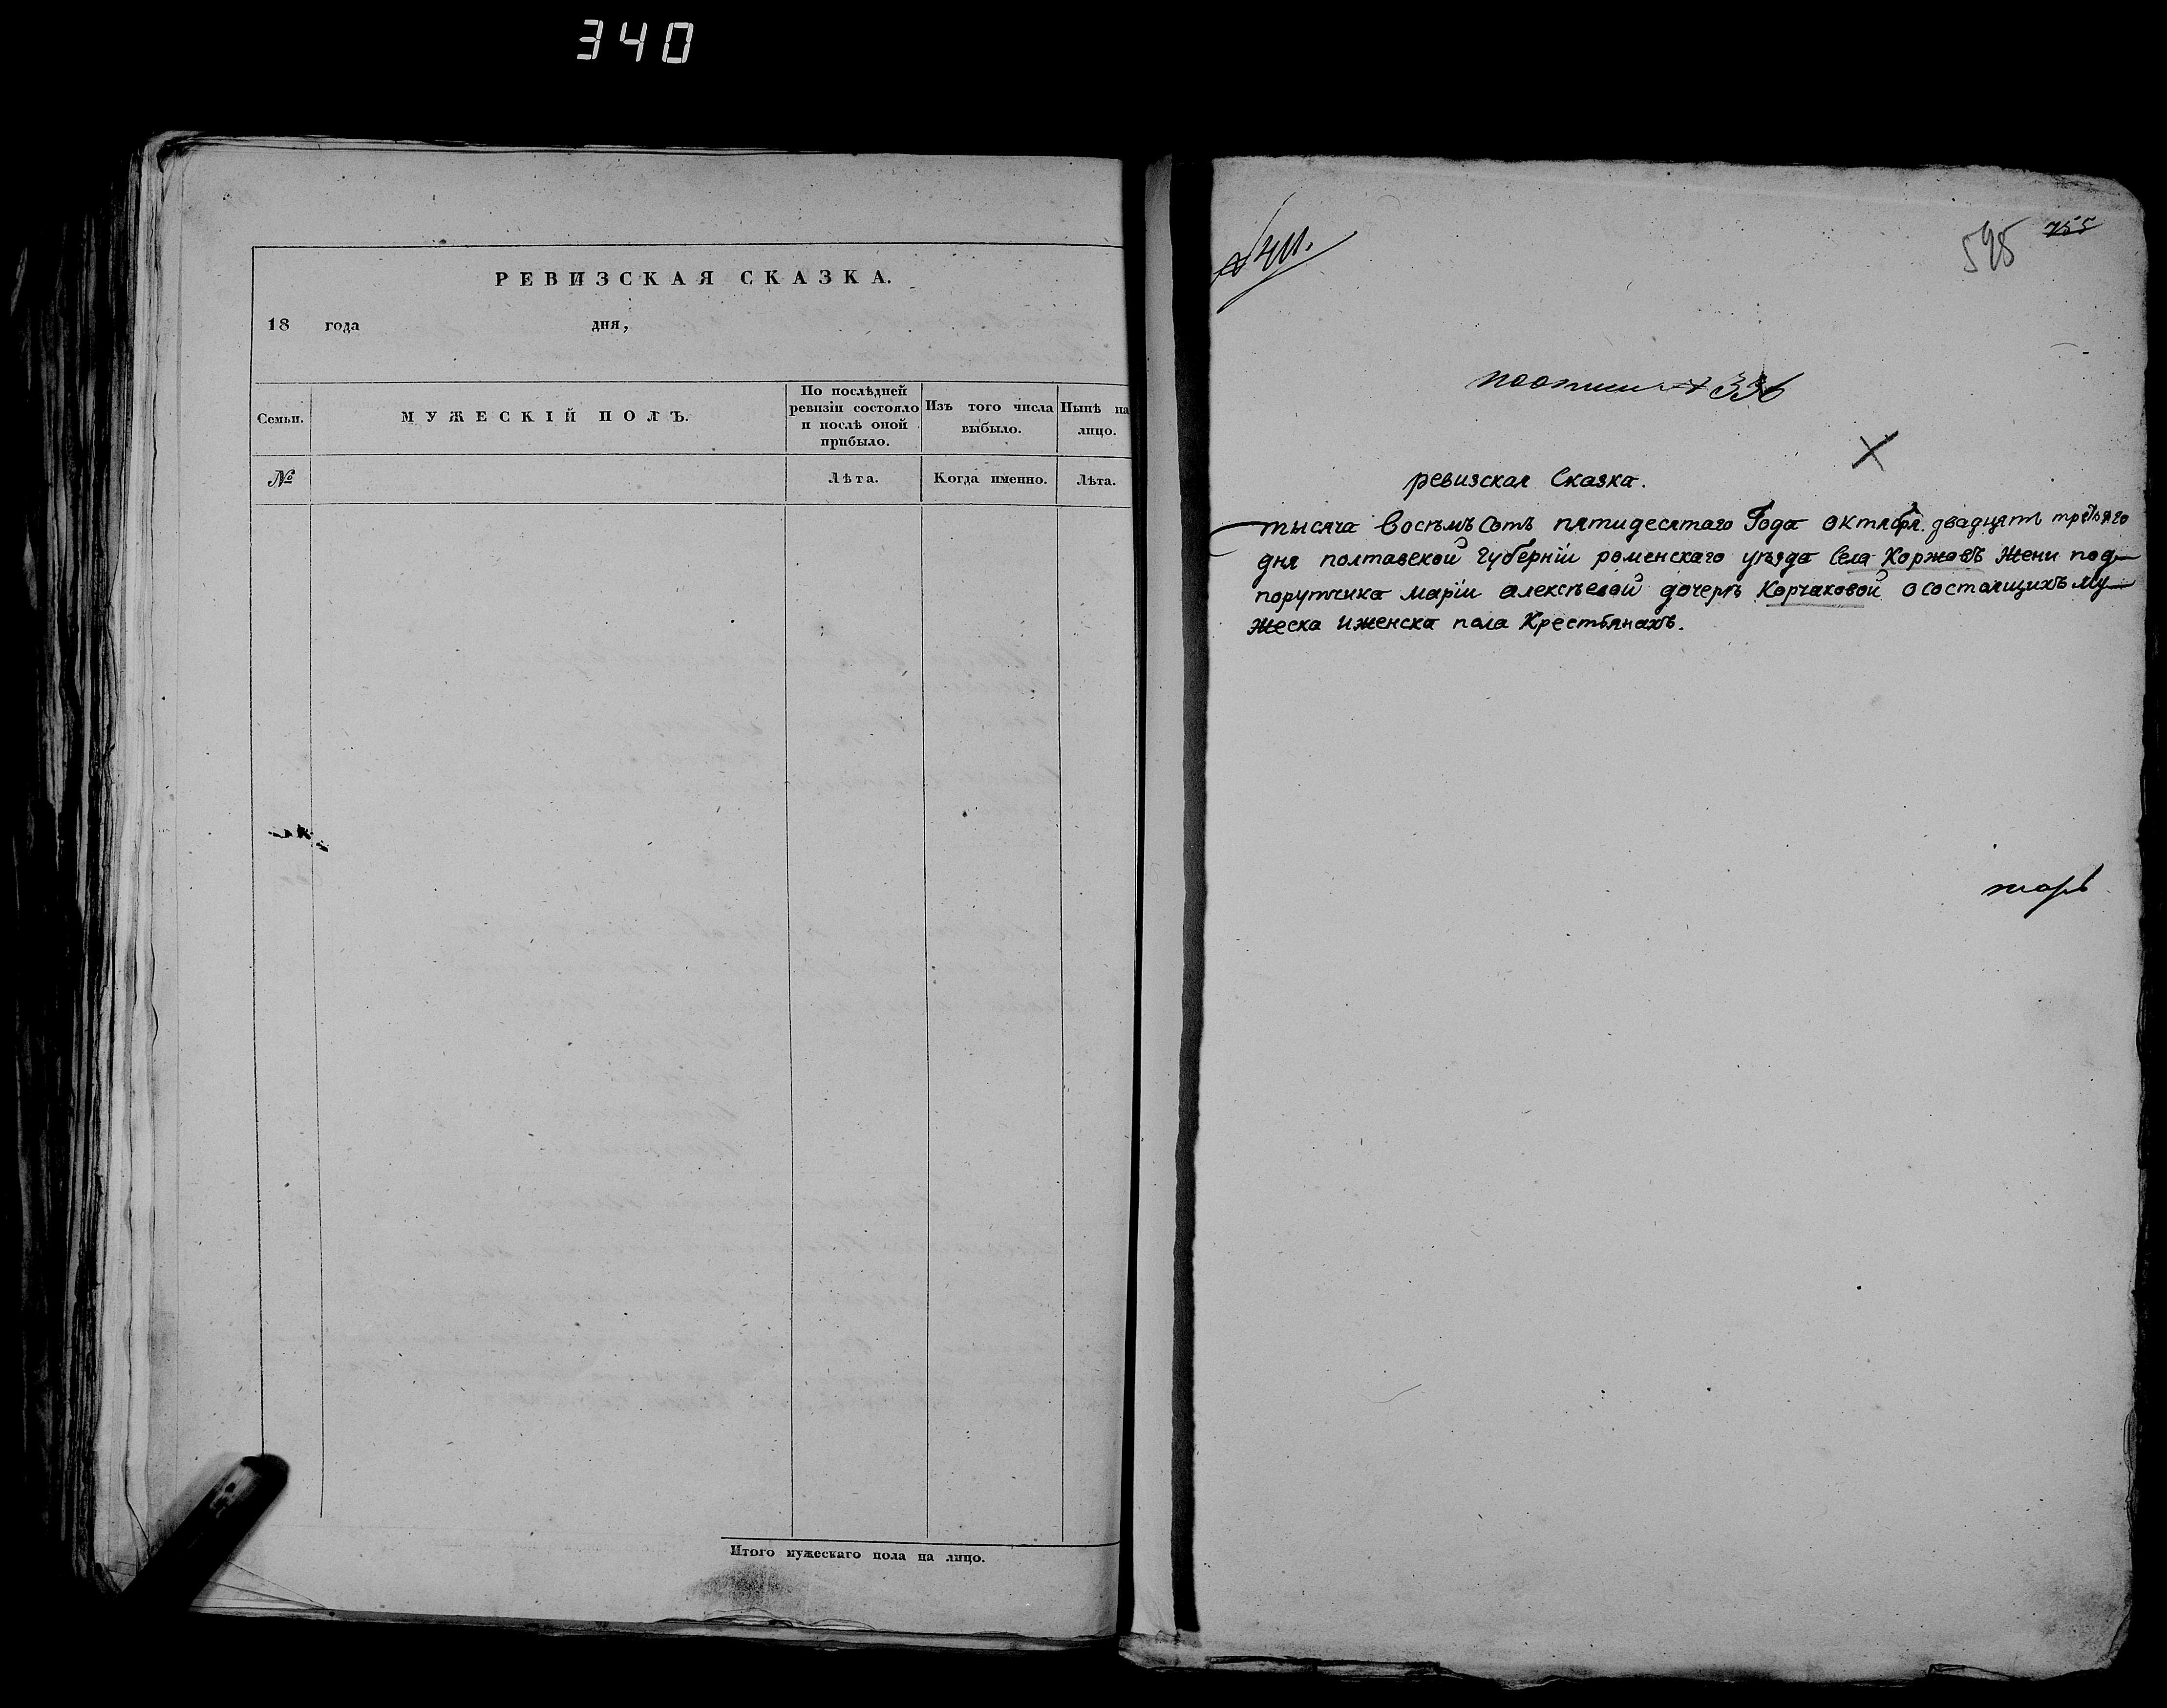 340
РЕВИЗСКАЯ СКАЗКА.
18 года дня,
Семьи.
МУЖЕСКІЙ ПОЛЪ.
По послѣдней ревизіи состояло и послѣ оной прибыло.
Изъ того числа выбыло.
Нынѣ на лицо.
№
Лѣта.
Когда именно.
Лѣта.
Итого мужескаго пола на лицо.
№ 411.
595 755
по описи № 336
ревизская Сказка.
тысяча восѣмъ Сотъ пятидесятаго Года октября двадцать третьяго
дня полтавской Губерніи роменскаго уѣзда Села Коржовъ Жени под-
порутчика маріи алексѣевой дочерѣ Корчаковой о состоящихъ му-
жеска иженска пола Крестьянахъ.